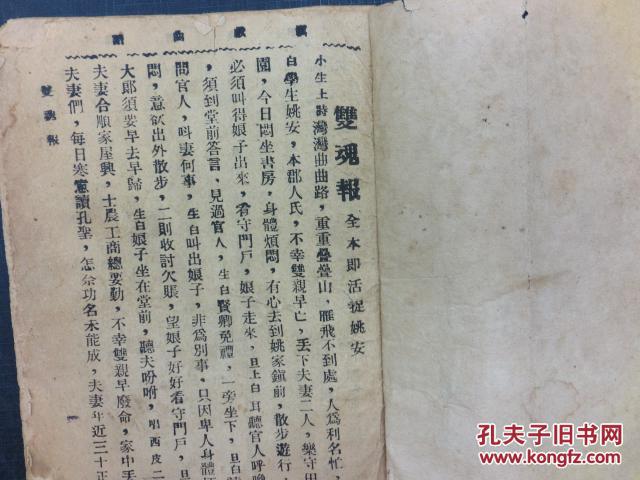 戲曲
雙魂報 全本即活捉姚安
小生上詩灣灣曲曲路，重重疊疊山，雁飛不到處，人爲利名忙，
白學生姚安，本郡人氏，不幸雙親早亡，丢下夫妻二人，樂守田
園，今日悶坐書房，身體煩悶，有心去到姚家鎭前，散步遊行，
必須叫得娘子出來，看守門戶，娘子走來，旦上白耳聽官人呼喚
，須到堂前答言，見過官人，生白賢卿免禮，一旁坐下，旦白請
問官人，叫妻何事，生白叫出娘子，非爲別事，只因卑人身體煩
悶，意欲出外散步，二則收討欠賬，望娘子好好看守門戶，旦
大郞須要早去早歸，生白娘子坐在堂前，聽夫吩咐，唱西皮二
夫妻合順家屋興，士農工商總要勤，不幸雙親早廢命，家中丢
夫妻們，每日寒窻讀孔聖，怎奈功名未能成，夫妻年近三十正
雙魂報
一
孔夫子旧书网
www.kongfz.com